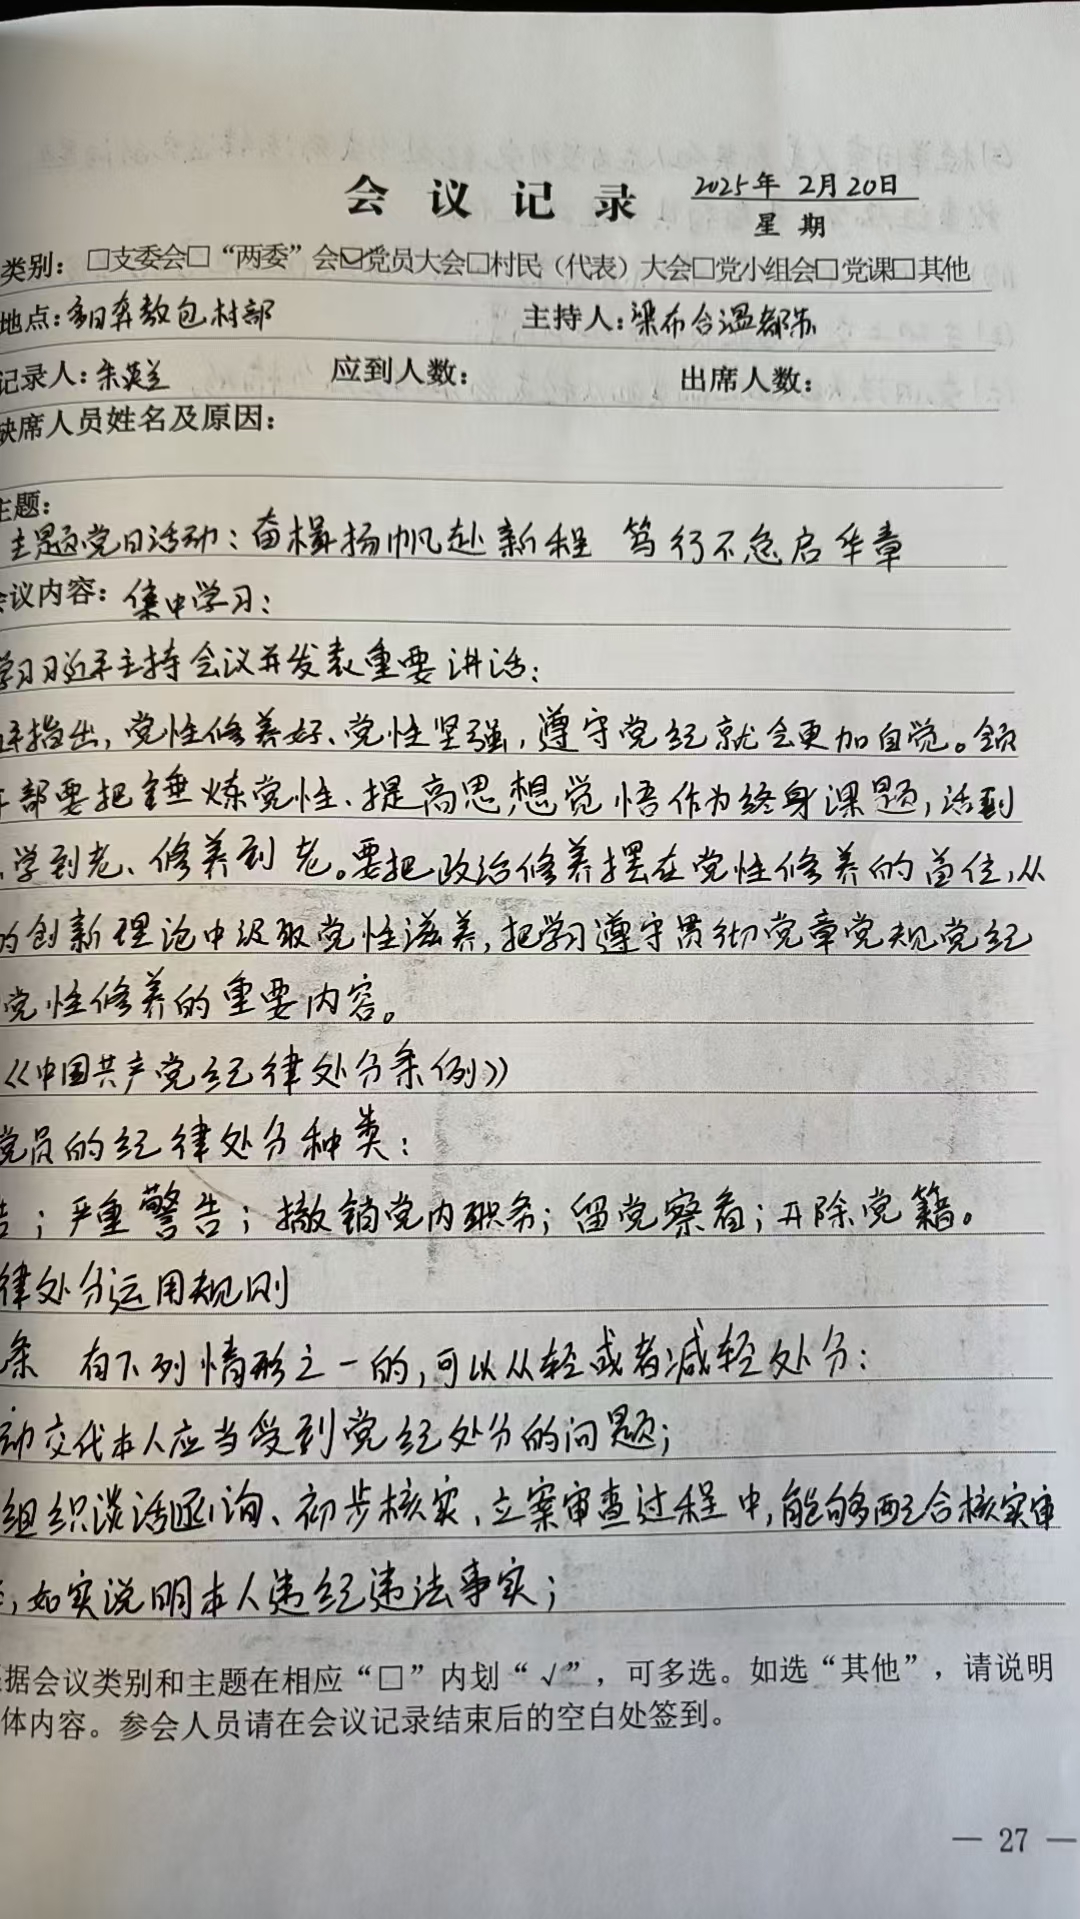 会议记录 2025年 2月 20日
星期
类别：□支委会□“两委”会☑党员大会□村民（代表）大会□党小组会□党课□其他
地点：多日奔敖包村部 主持人：梁布合温都苏
记录人：朱英兰 应到人数： 出席人数：
缺席人员姓名及原因：
主题：
主题党日活动：奋楫扬帆赴新程 笃行不怠启华章
会议内容：集中学习：
学习习近平主持会议并发表重要讲话：
平指出，党性修养好、党性坚强，遵守党纪就会更加自觉。领
干部要把锤炼党性、提高思想觉悟作为终身课题，活到
、学到老、修养到老。要把政治修养摆在党性修养的首位，从
的创新理论中汲取党性滋养，把学习遵守贯彻党章党规党纪
党性修养的重要内容。
《中国共产党纪律处分条例》
党员的纪律处分种类：
告；严重警告；撤销党内职务；留党察看；开除党籍。
律处分运用规则
条 有下列情形之一的，可以从轻或者减轻处分：
动交代本人应当受到党纪处分的问题；
组织谈话函询、初步核实、立案审查过程中，能够配合核实审
，如实说明本人违纪违法事实；
据会议类别和主题在相应“□”内划“√”，可多选。如选“其他”，请说明
体内容。参会人员请在会议记录结束后的空白处签到。
— 27 —